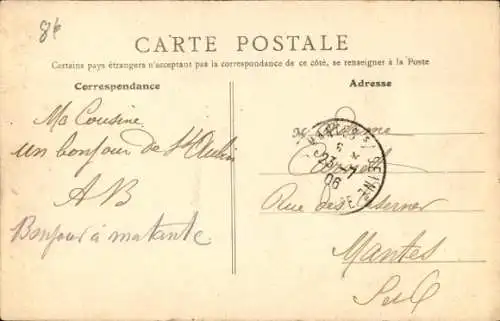 86
CARTE POSTALE
Certains pays étrangers n'acceptant pas la correspondance de ce côté, se renseigner à la Poste
Correspondance
Adresse
Ma Cousine
un bonjour de St Aubin
AB
Bonjour à ma tante
M
Rue des
Mantes
S et O
23 -7
06
SEINE